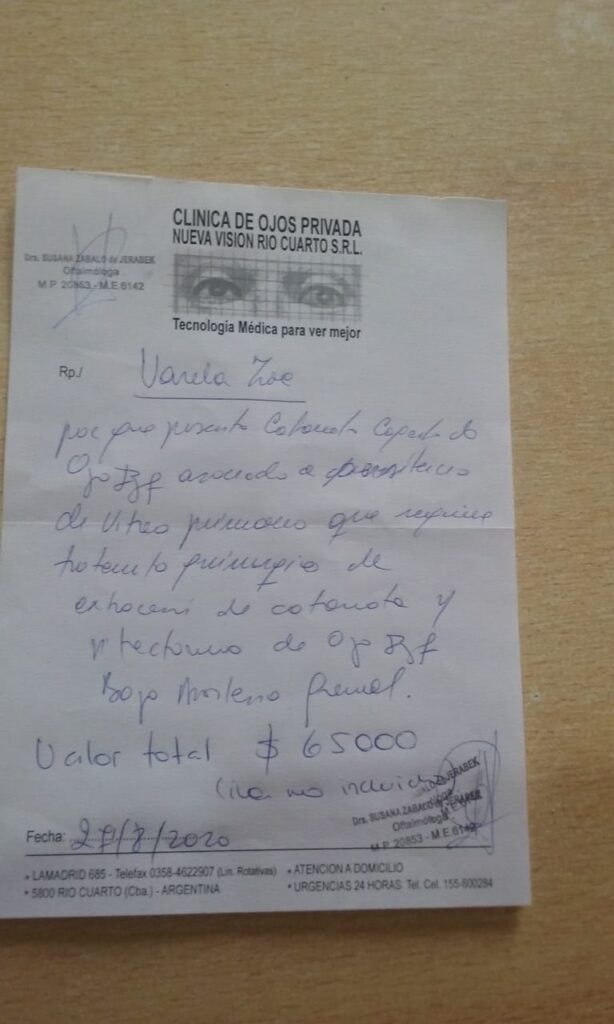 CLINICA DE OJOS PRIVADA
NUEVA VISION RIO CUARTO S.R.L.
Dra. SUSANA ZABALO de JERABEK
Oftalmóloga
M.P. 20853 - M.E.6142
Tecnología Médica para ver mejor
Rp./ Varela Zoe
por que presenta Catarata
Ojo Izq asociado a persistencia
de vitreo primario que requiere
tratamiento quirurgico de
extraccion de catarata y
vitrectomia de Ojo Izq
Bajo Anestesia General.
Valor total $ 65000
no incluida
Dra. SUSANA ZABALO de JERABEK
Oftalmóloga
M.P. 20853 - M.E.6142
Fecha: 2020
* LAMADRID 685 - Telefax 0358-4622907 (Lin. Rotativas) * ATENCION A DOMICILIO
* 5800 RIO CUARTO (Cba.) - ARGENTINA * URGENCIAS 24 HORAS Tel. Cel. 155-600284